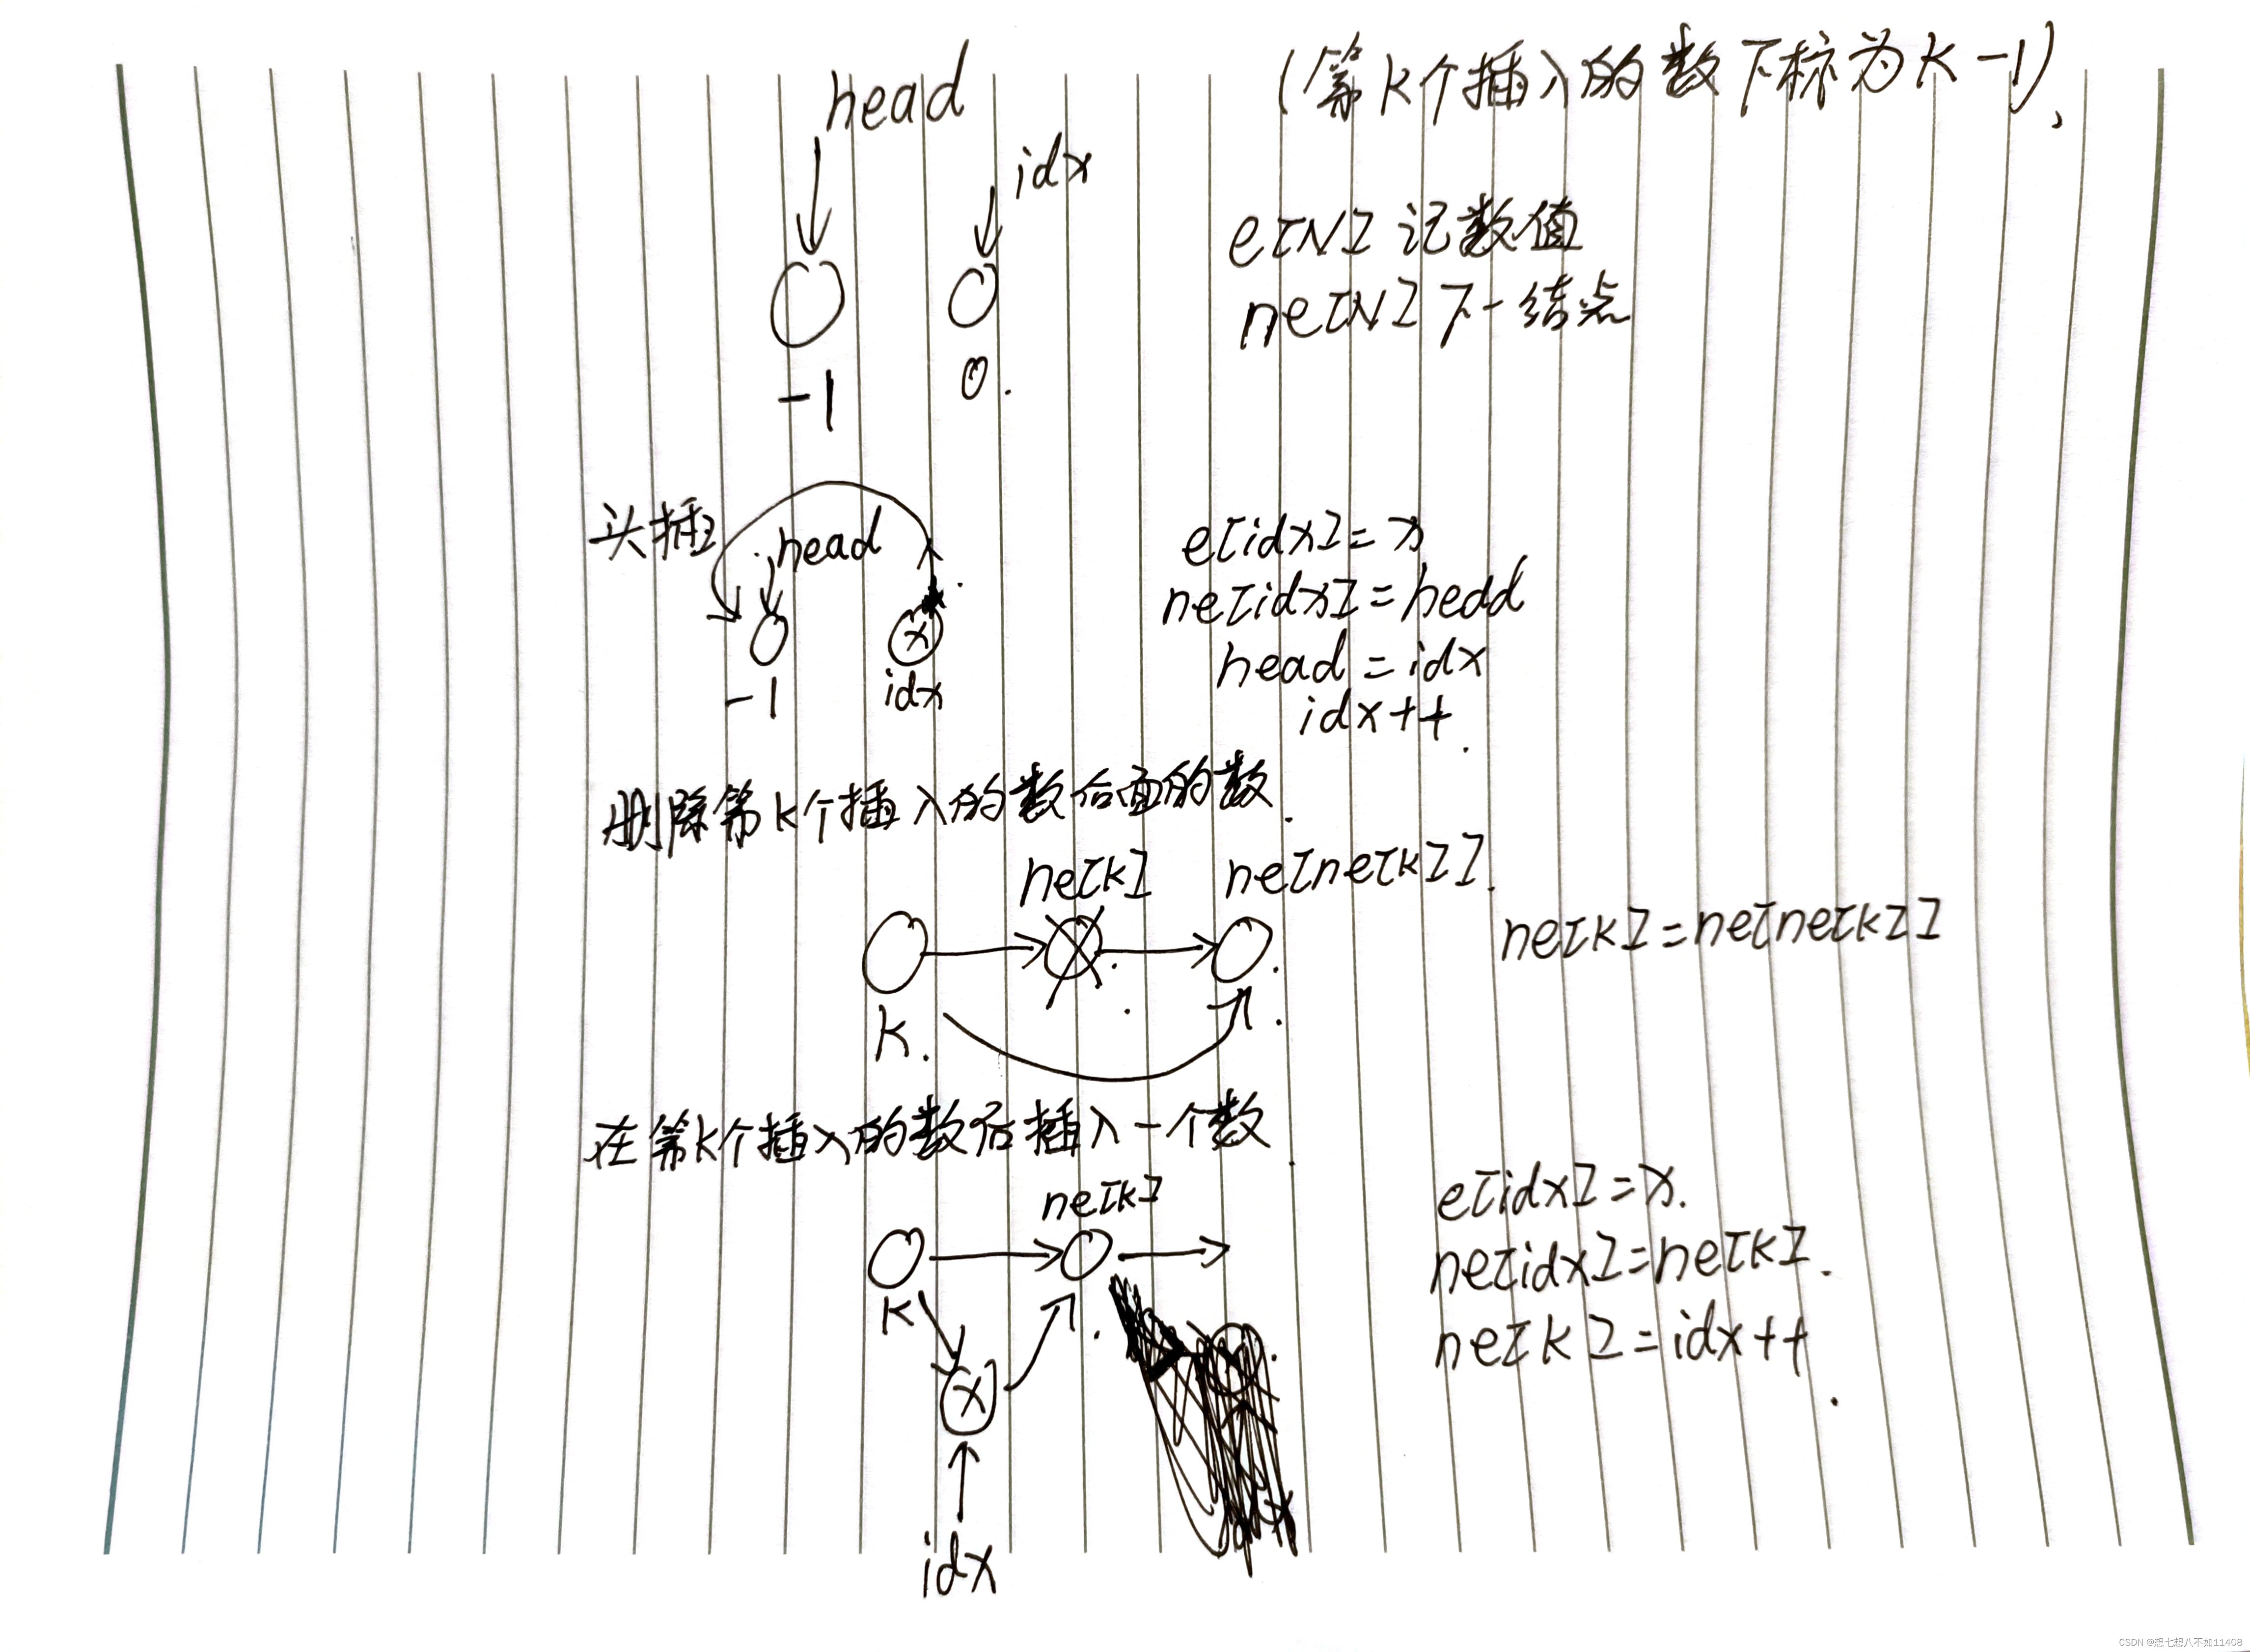 head
(第k个插入的数下标为k-1)
idx
e[N] 记数值
ne[N] 下一结点
-1
0.
头插
head
e[idx]=x
ne[idx]=head
-1
idx
head=idx
idx++
删除第k个插入的数后面的数.
ne[k]
ne[ne[k]]
ne[k]=ne[ne[k]]
k.
在第k个插入的数后插入一个数.
ne[k]
e[idx]=x.
ne[idx]=ne[k].
k
x
ne[k]=idx++
x
idx
CSDN @想七想八不如11408